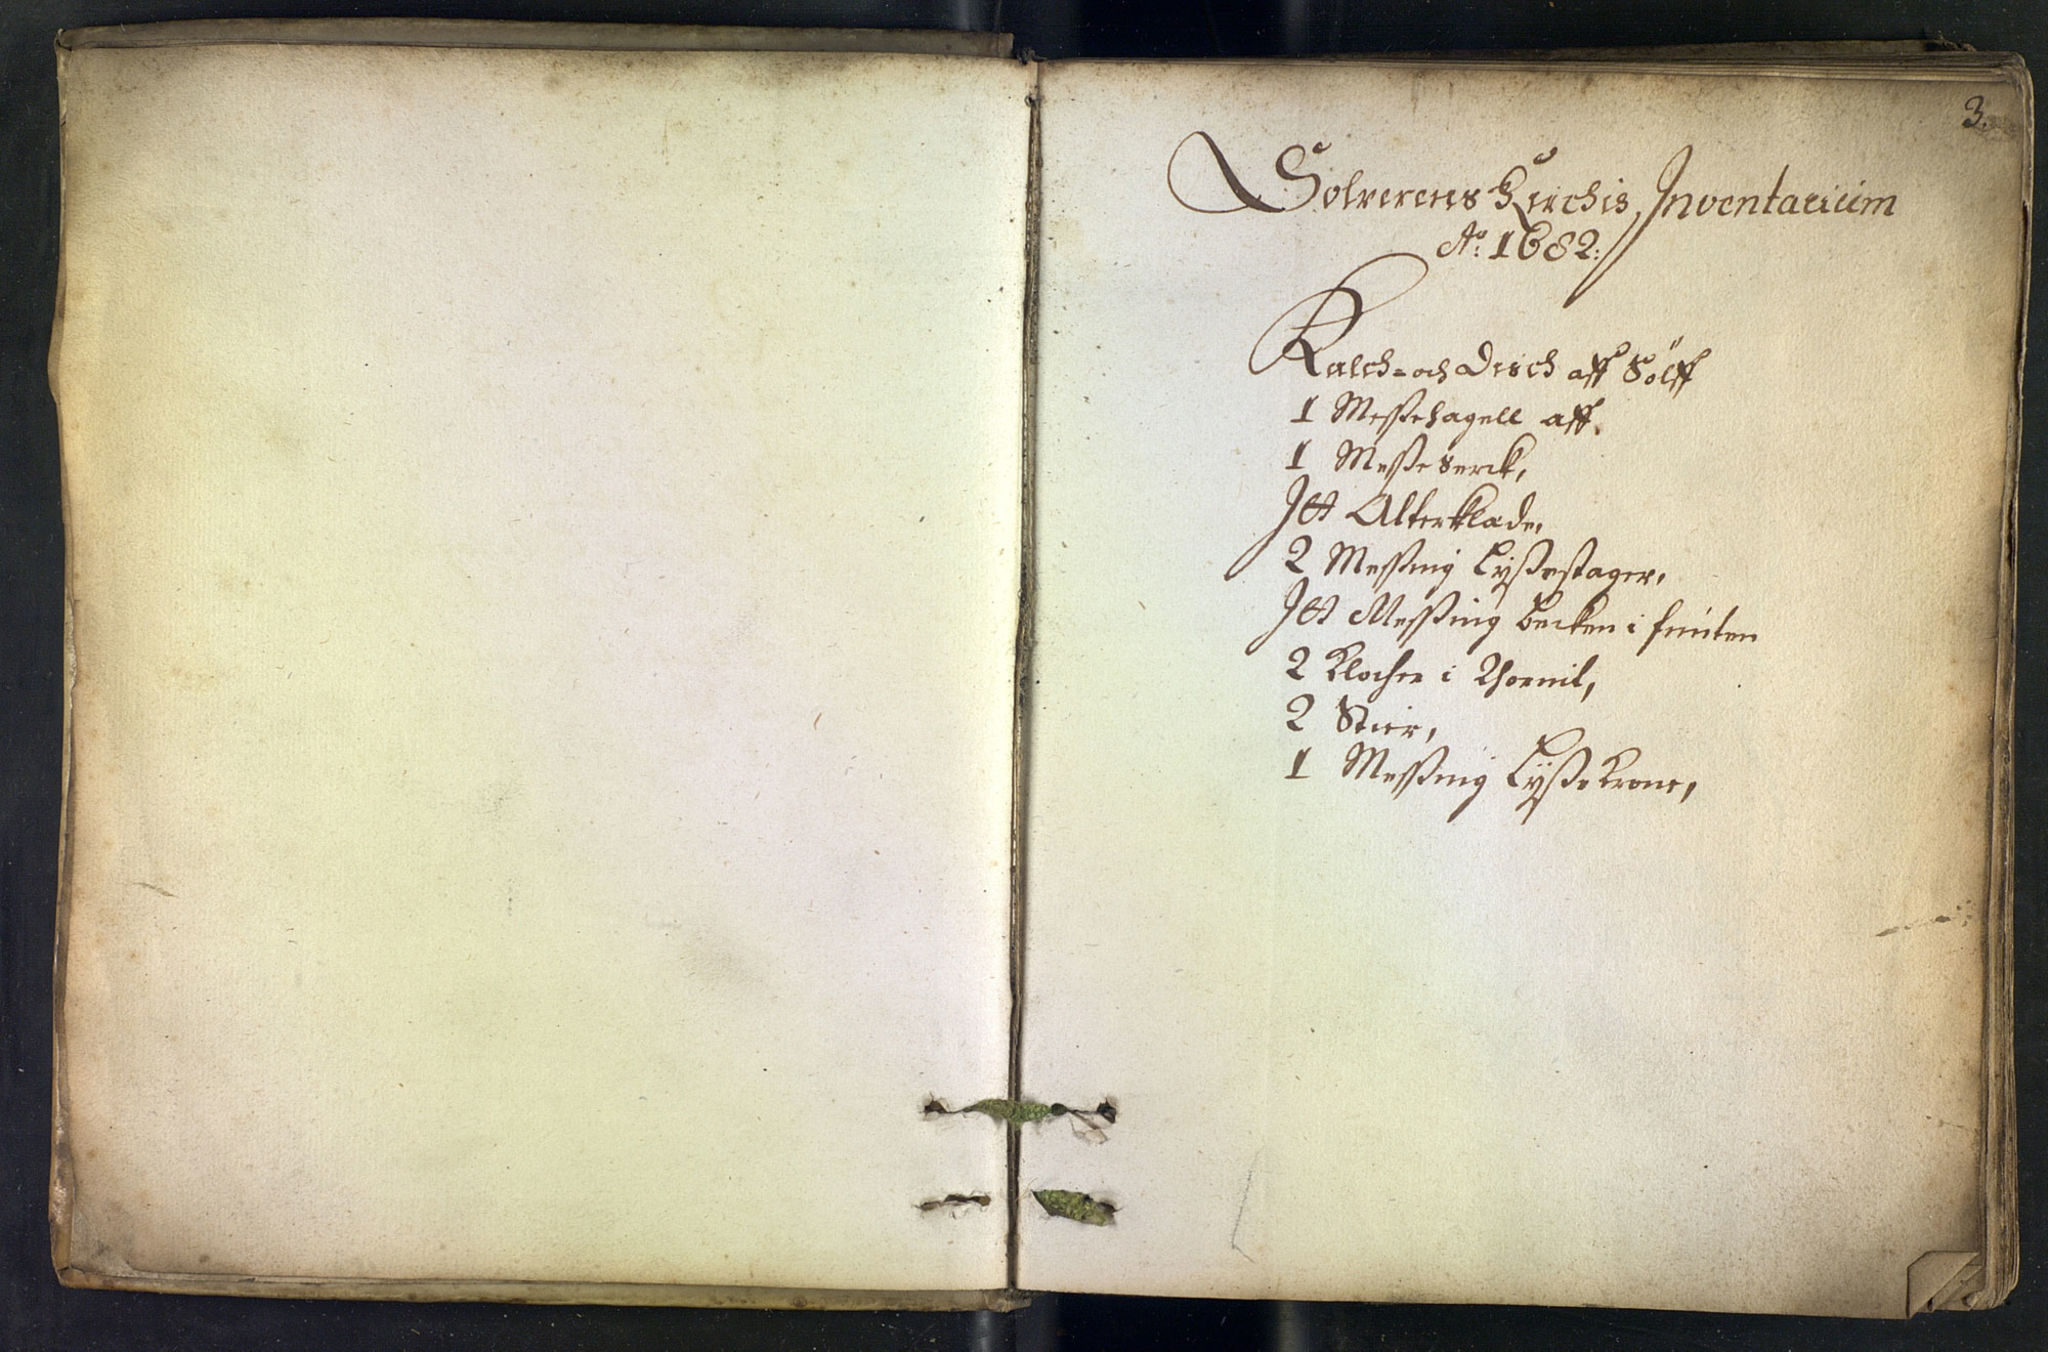 3.
Solverens Kirchis Inventarium
Ao: 1682:
Kalch- och Disch aff Sölff
1 Messehagell aff.
1 Messe serck,
Itt Alterklade,
2 Messing Lyssestager,
Itt Messing becken i funten
2 Klocher i Thornit,
2 Stier,
1 Messing Lysse Krone,